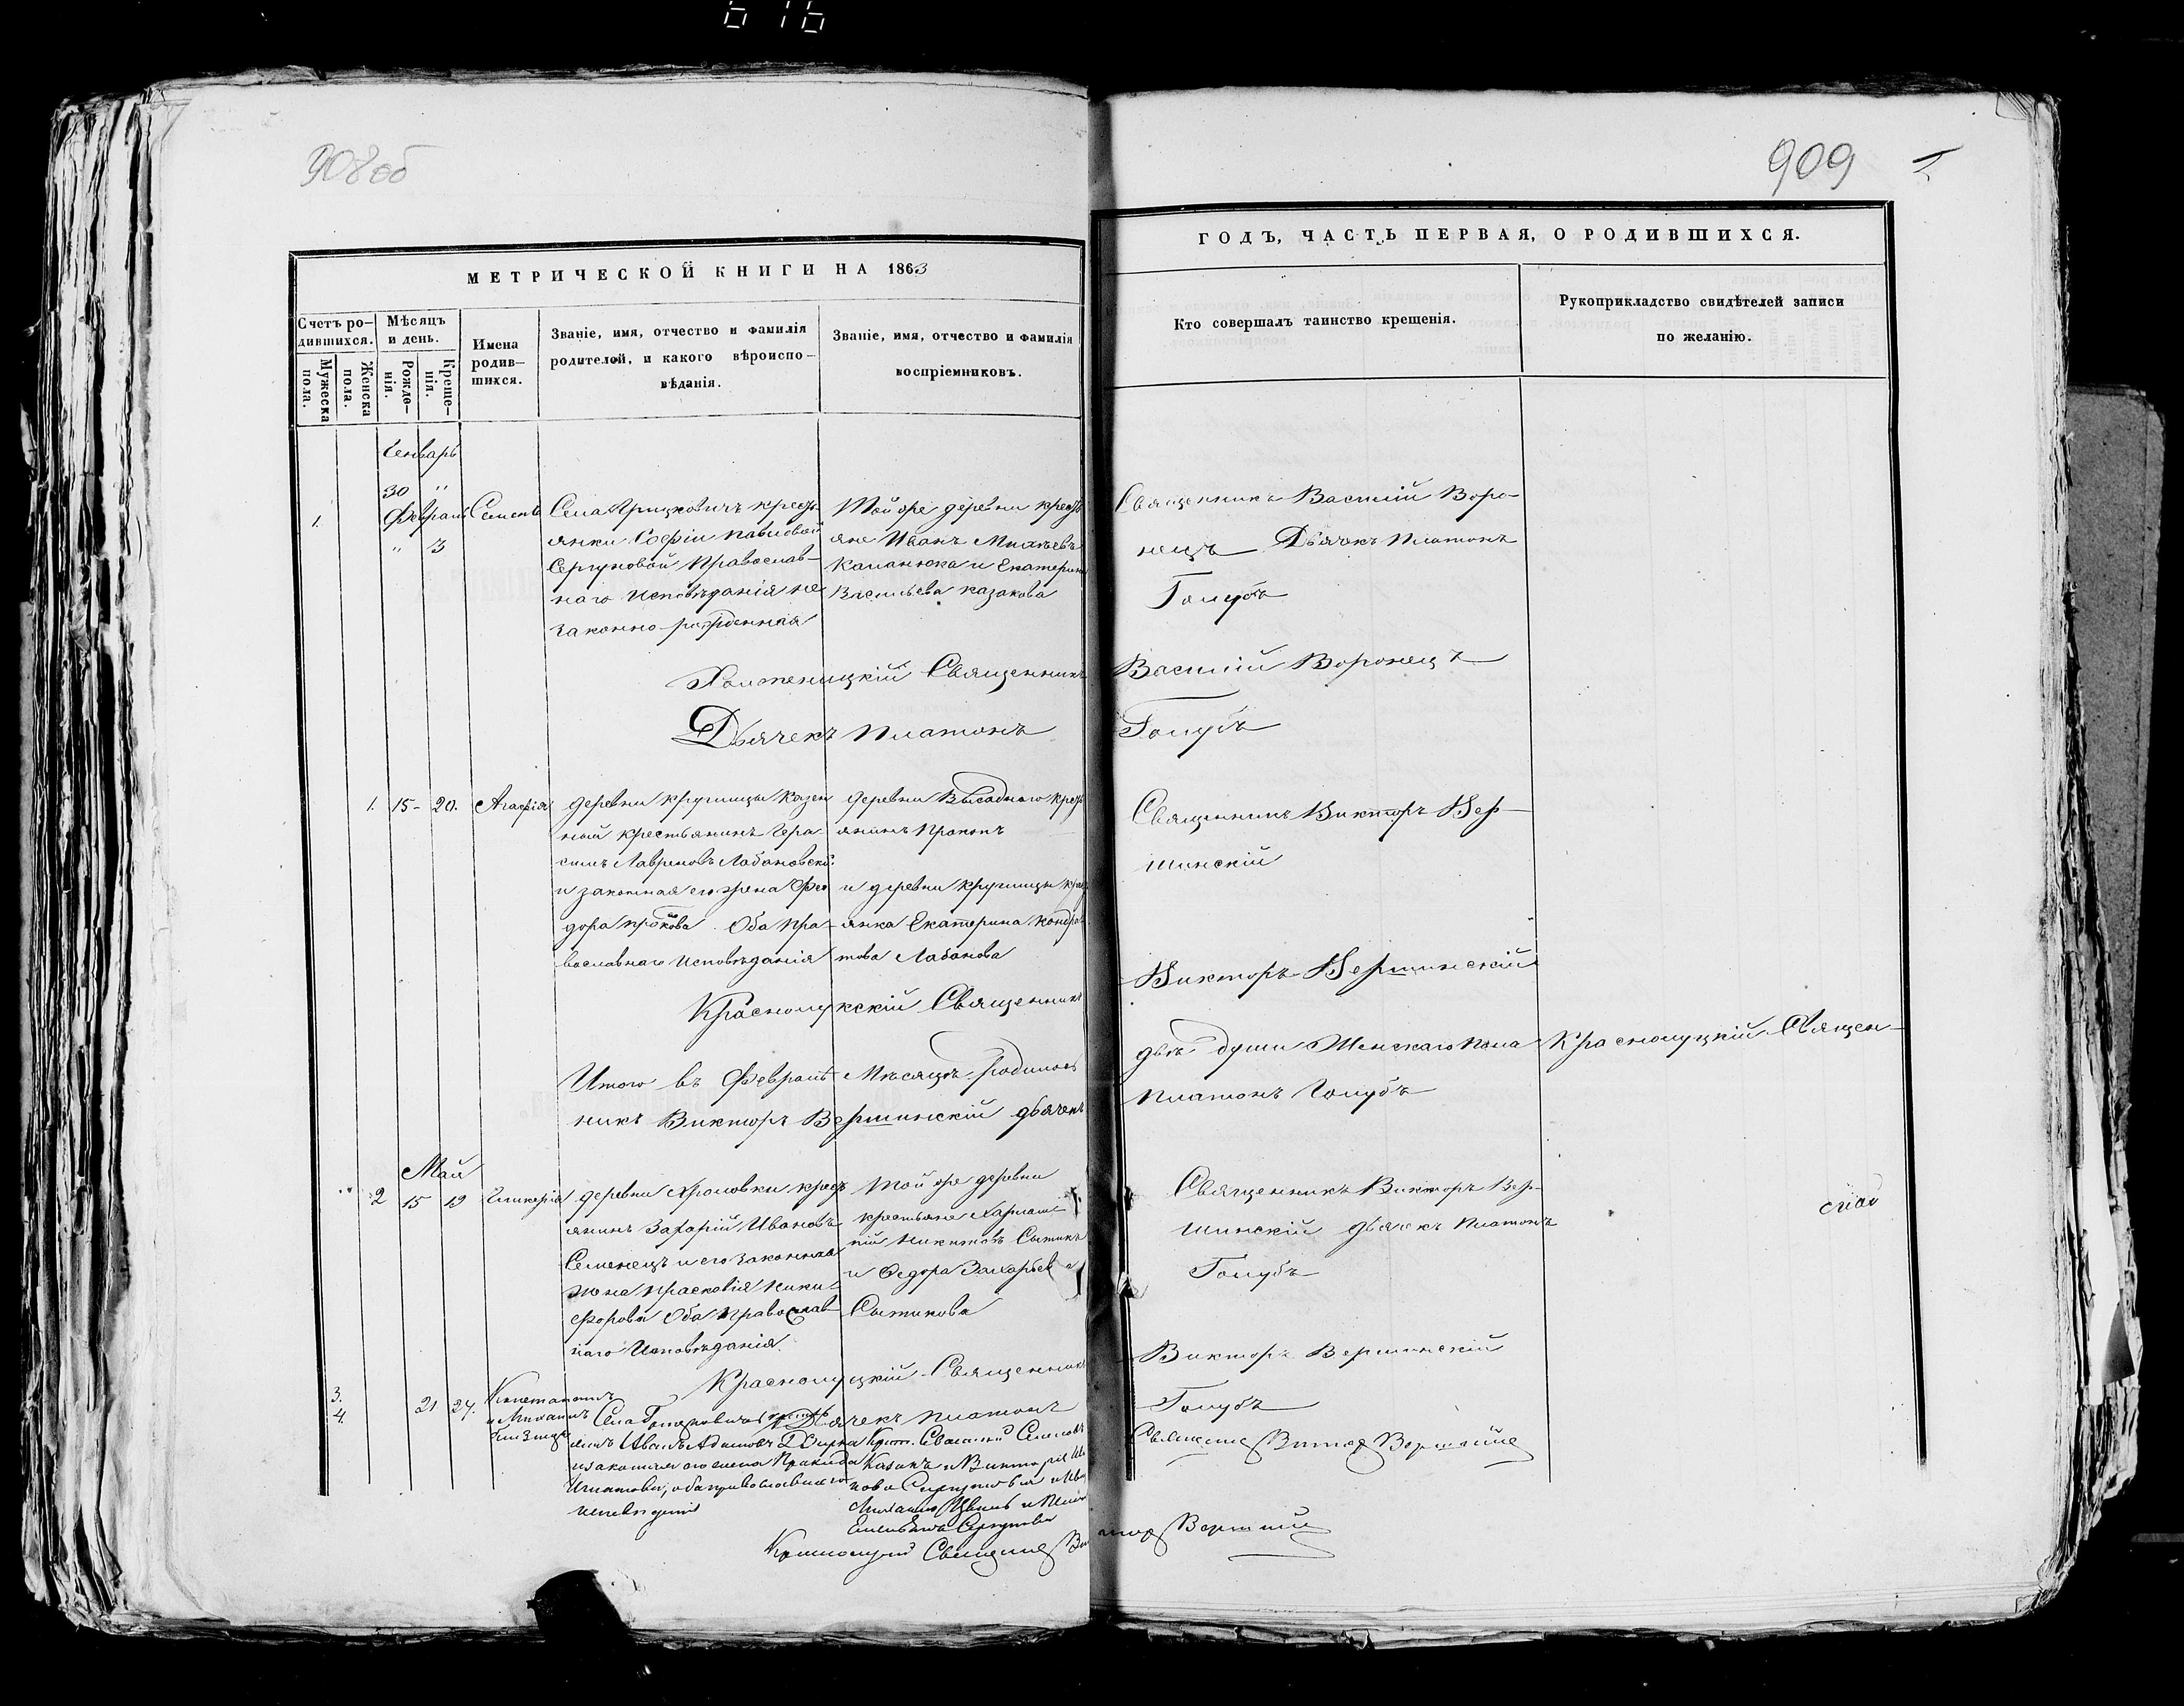 616
908 об
909
МЕТРИЧЕСКОЙ КНИГИ НА 1863
ГОДЪ, ЧАСТЬ ПЕРВАЯ, О РОДИВШИХСЯ.
Счетъ ро-
дившихся.
Мужеска
пола.
Женска
пола.
Мѣсяцъ
и день.
Рожде-
нія.
Креще-
нія.
Имена
родив-
шихся.
Званіе, имя, отчество и фамилія
родителей, и какого вѣроиспо-
вѣданія.
Званіе, имя, отчество и фамилія
воспріемниковъ.
Кто совершалъ таинство крещенія.
Рукоприкладство свидѣтелей записи
по желанію.
Генварь
30 "
Февраль
1. " 3
Семенъ
Села Грицковичъ кресть
янки Софіи Павловой
Сергуновой Православ-
наго Исповѣданія не
законно-рожденная
Той же деревни кресть
яне Иванъ Михѣевъ
Каланюка и Екатерина
Васильева Казакова
Священникъ Василій Воро-
нецъ Дьячекъ Платонъ
Голубъ
Холопеницкій Священникъ Василій Воронецъ
Дьячекъ Платонъ Голубъ
1. 15 - 20. Агафія
деревни Круглицы Казен
ный крестьянинъ Гера-
симъ Лавреновъ Лабановскій
и законная его жена Фео
дора Прокова Оба Пра-
вославнаго Исповѣданія
деревни Высаднаго крест
янинъ Прокопъ
и деревни Круглицы крест
янка Екатерина Кондра
това Лабанова
Священникъ Викторъ Вер-
шинскій
Краснолукскій Священникъ Викторъ Вершинскій
Итого въ Февралѣ Мѣсяцѣ родилось двѣ души Женскаго Пола Краснолуцкій Священ-
никъ Викторъ Вершинскій дьячекъ Платонъ Голубъ
Май
2 15 19 Гликерія
деревни Хроловки крест
янинъ Захарій Ивановъ
Семенецъ и его законная
жена Прасковія Ники-
форова Оба Православ-
наго Исповѣданія.
Той же деревни
крестьяне Харлам
пій Никитовъ Сытикъ
и Федора Захарьева
Сытикова
Священникъ Викторъ Вер-
шинскій дьячекъ Платонъ
Голубъ
Краснолуцкій Священникъ Викторъ Вершинскій
Дьячекъ Платонъ Голубъ
3.
4. 21 24.
Константинъ
и Михаилъ
близнецы
Иванъ Адамовъ
и законная его жена
Игнатова, оба православнаго
исповеданія
Крест. Семеновъ
Казакъ и Викторія
Священ Виктор Вершинс
Краснолуцкій Священ Виктор Вершинс